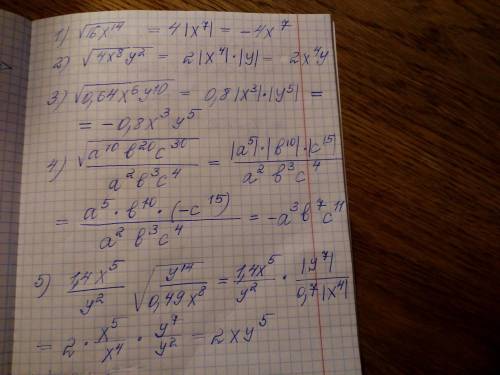 1) √16x¹⁴ = 4|x⁷| = -4x⁷
2) √4x⁸y² = 2|x⁴|·|y| = 2x⁴y
3) √0,64x⁶y¹⁰ = 0,8|x³|·|y⁵| =
= -0,8x³y⁵
4) √a¹⁰b²⁰c³⁰ / a²b³c⁴ = |a⁵|·|b¹⁰|·|c¹⁵| / a²b³c⁴
= a⁵·b¹⁰·(-c¹⁵) / a²b³c⁴ = -a³b⁷c¹¹
5) 1,4x⁵/y² √(y¹⁴/0,49x⁸) = 1,4x⁵/y² · |y⁷|/0,7|x⁴|
= 2·x⁵/x⁴·y⁷/y² = 2xy⁵